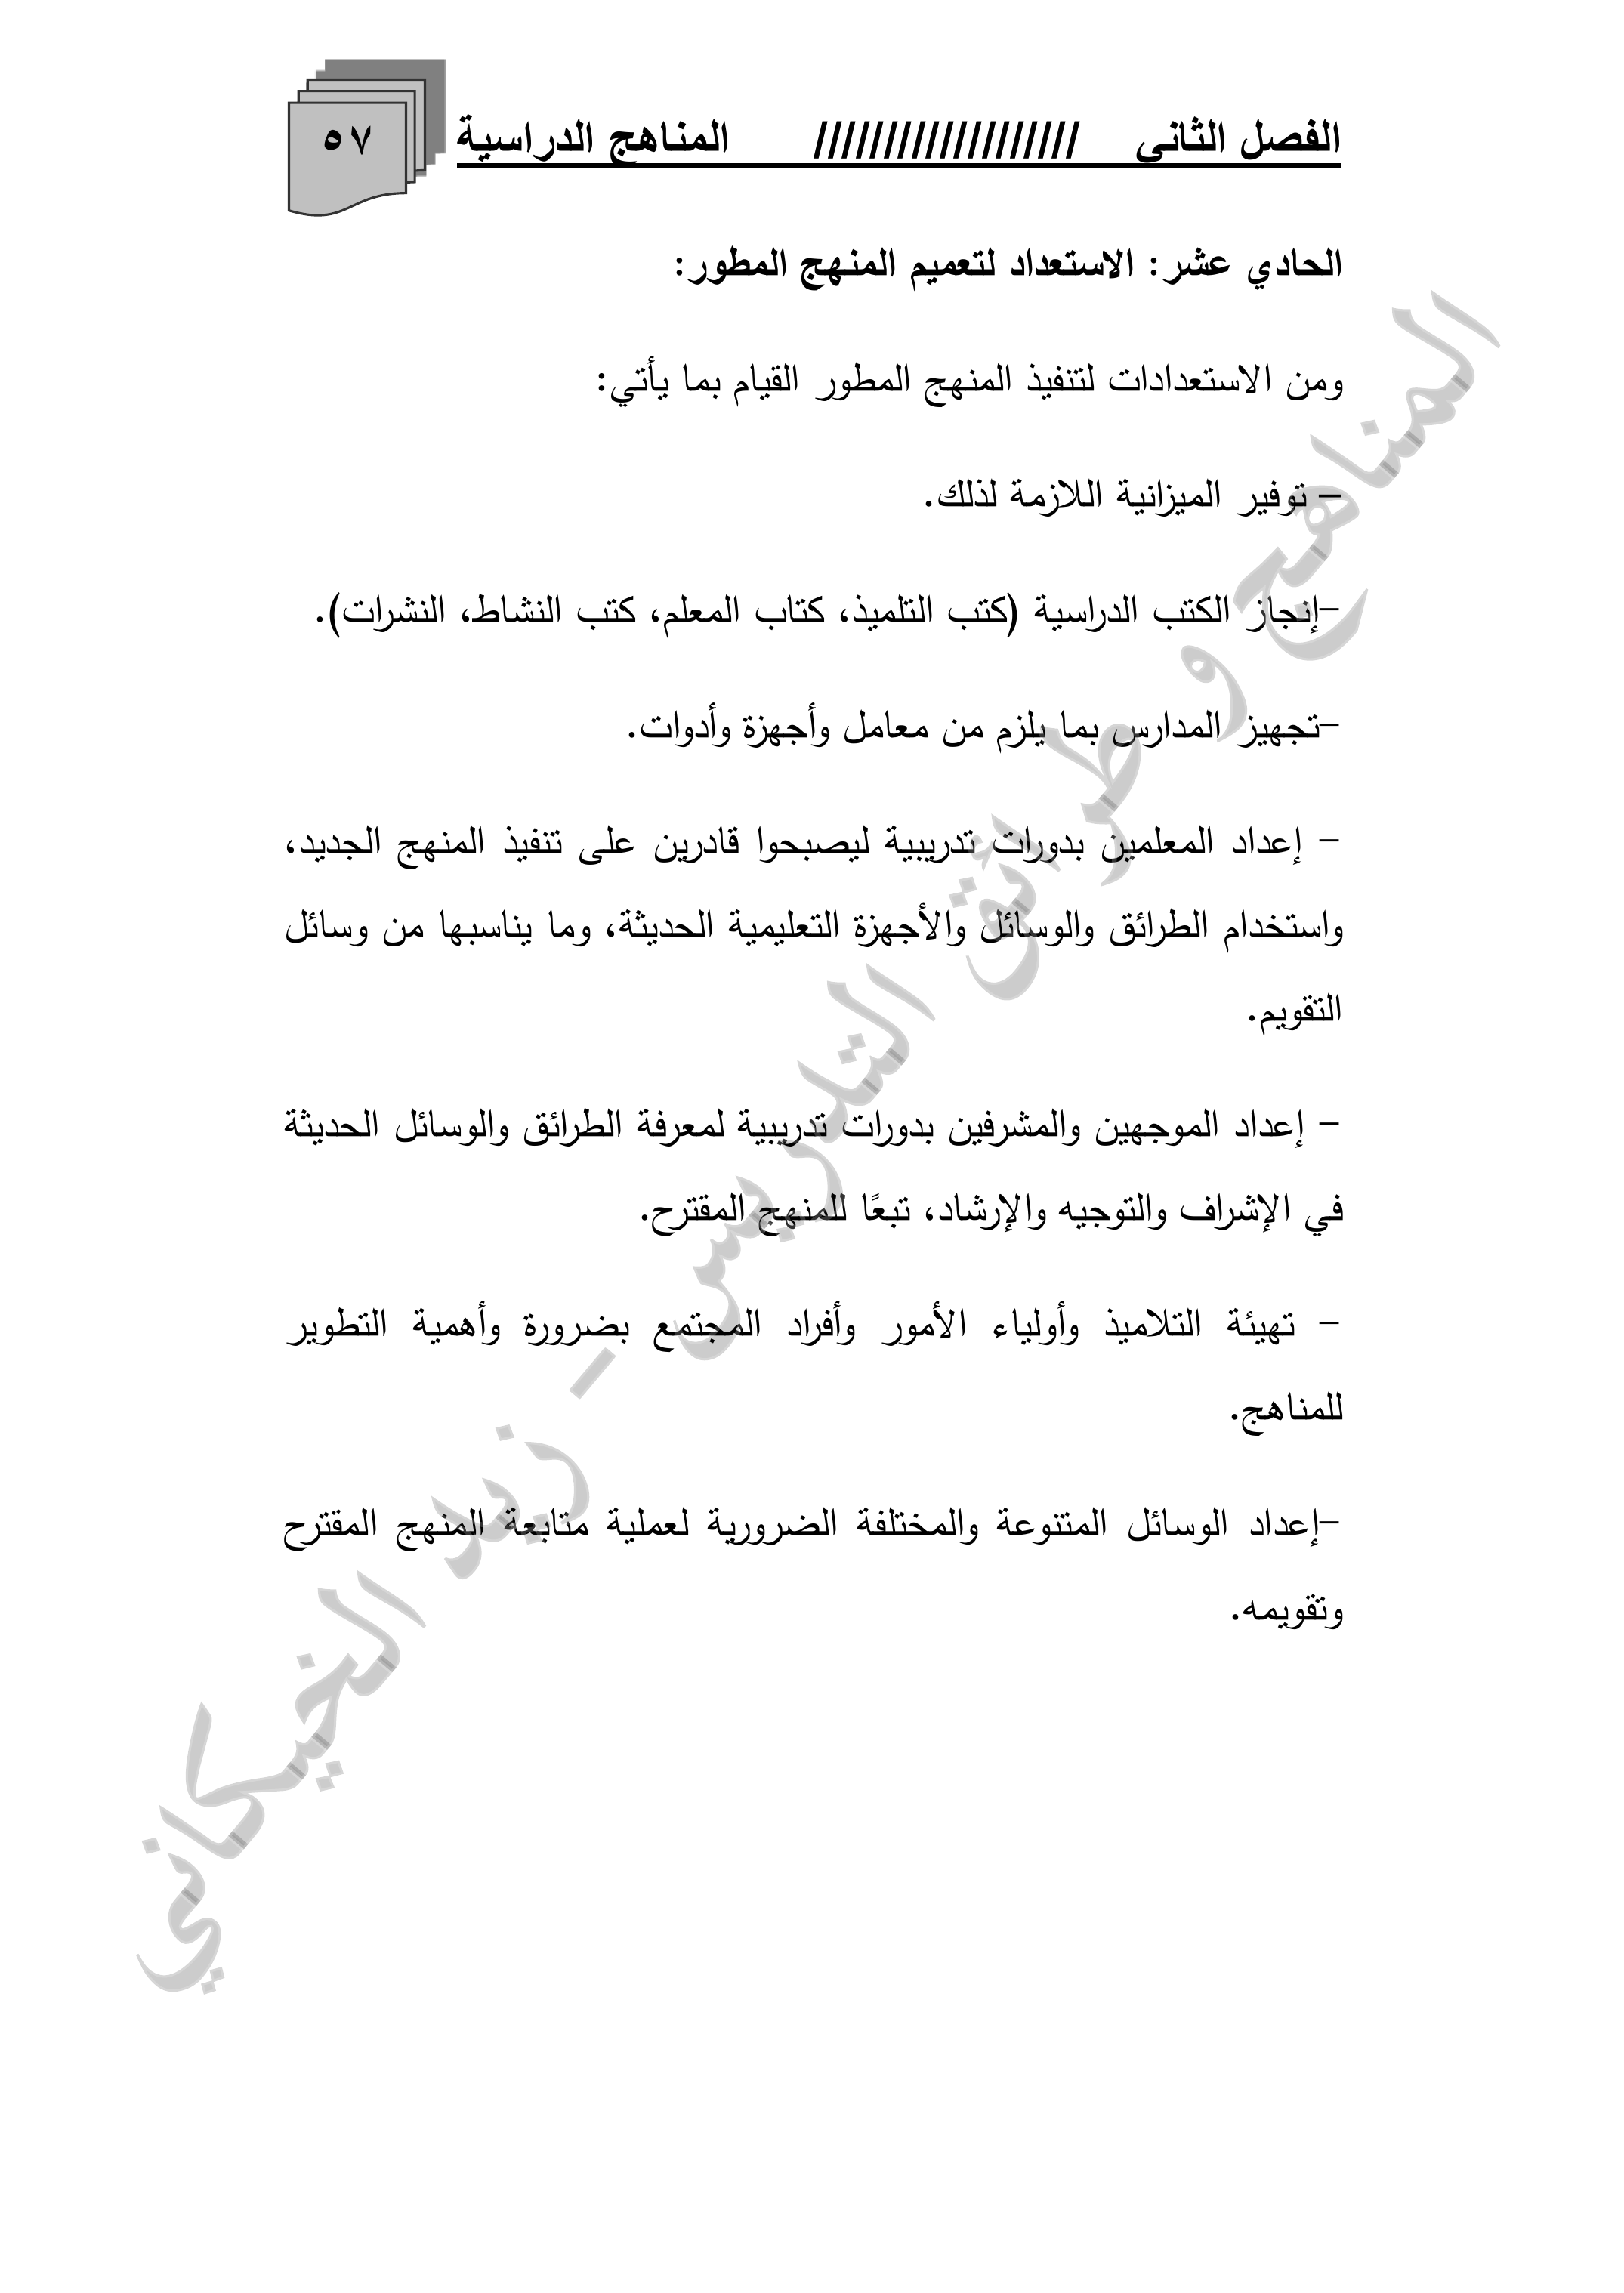 الفصل الثاني /////////////////// المناهج الدراسية ٥٧
الحادي عشر: الاستعداد لتعميم المنهج المطور:
ومن الاستعدادات لتنفيذ المنهج المطور القيام بما يأتي:
– توفير الميزانية اللازمة لذلك.
–إنجاز الكتب الدراسية (كتب التلميذ، كتاب المعلم، كتب النشاط، النشرات).
–تجهيز المدارس بما يلزم من معامل وأجهزة وأدوات.
– إعداد المعلمين بدورات تدريبية ليصبحوا قادرين على تنفيذ المنهج الجديد،
واستخدام الطرائق والوسائل والأجهزة التعليمية الحديثة، وما يناسبها من وسائل
التقويم.
– إعداد الموجهين والمشرفين بدورات تدريبية لمعرفة الطرائق والوسائل الحديثة
في الإشراف والتوجيه والإرشاد، تبعًا للمنهج المقترح.
– تهيئة التلاميذ وأولياء الأمور وأفراد المجتمع بضرورة وأهمية التطوير
للمناهج.
–إعداد الوسائل المتنوعة والمختلفة الضرورية لعملية متابعة المنهج المقترح
وتقويمه.
المناهج و طرائق التدريس - زيد الخيكاني